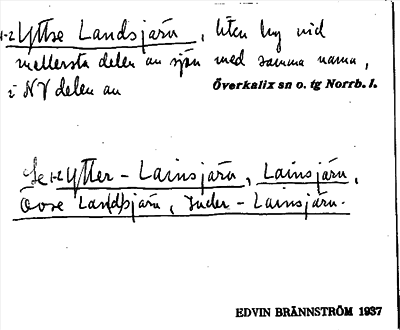 1-2 Yttse Landsjärn, liten by vid
mellersta delen av sjön med samma namn,
i NV delen av Överkalix sn o. tg Norrb. l.
Se 1-2 Ytter-Lainsjärn, Lainsjärn,
Lan(d)sjärn, Inder-Lainsjärn.
EDVIN BRÄNNSTRÖM 1937